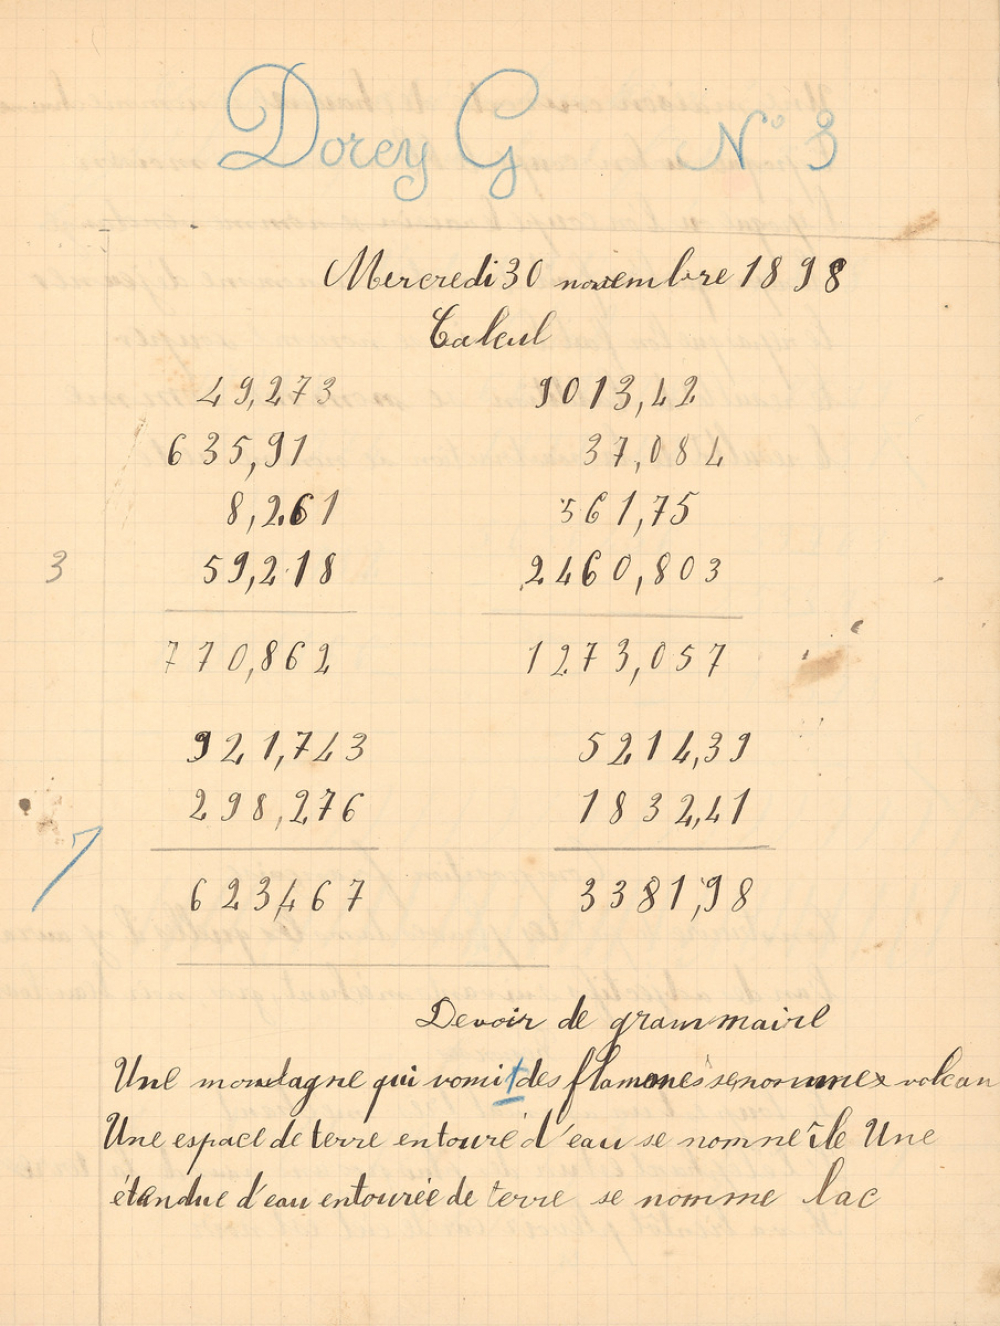 Dorey G N° 3
Mercredi 30 novembre 1898
Calcul
49,273 9013,42
635,91 37,084
8,261 561,75
3 59,218 2460,803
770,862 1273,057
921,743 5214,39
298,276 1832,41
7 623,467 3381,98
Devoir de grammaire
Une montagne qui vomit des flammes se nomme volcan
Une espace de terre entouré d'eau se nomme île Une
étandue d'eau entourée de terre se nomme lac